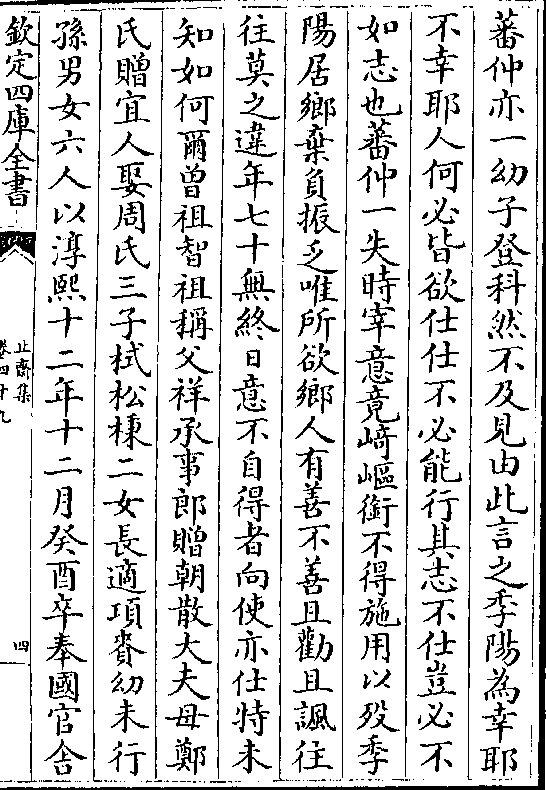 蕃仲亦一幼子登科然不及見由此言之季陽為幸耶
不幸耶人何必皆欲仕仕不必能行其志不仕豈必不
如志也蕃仲一失時宰意竟﨑嶇銜不得施用以歿季
陽居鄉棄負振乏唯所欲鄉人有善不善且勸且諷往
往莫之違年七十無終日意不自得者向使亦仕特未
知如何爾曽祖智祖稱父祥承事郎贈朝散大夫母鄭
氏贈宜人娶周氏三子栻松棟二女長適項賚幼未行
孫男女六人以淳熙十二年十二月癸酉卒奉國官舍
欽定四庫全書
止齋集
卷四十九
四